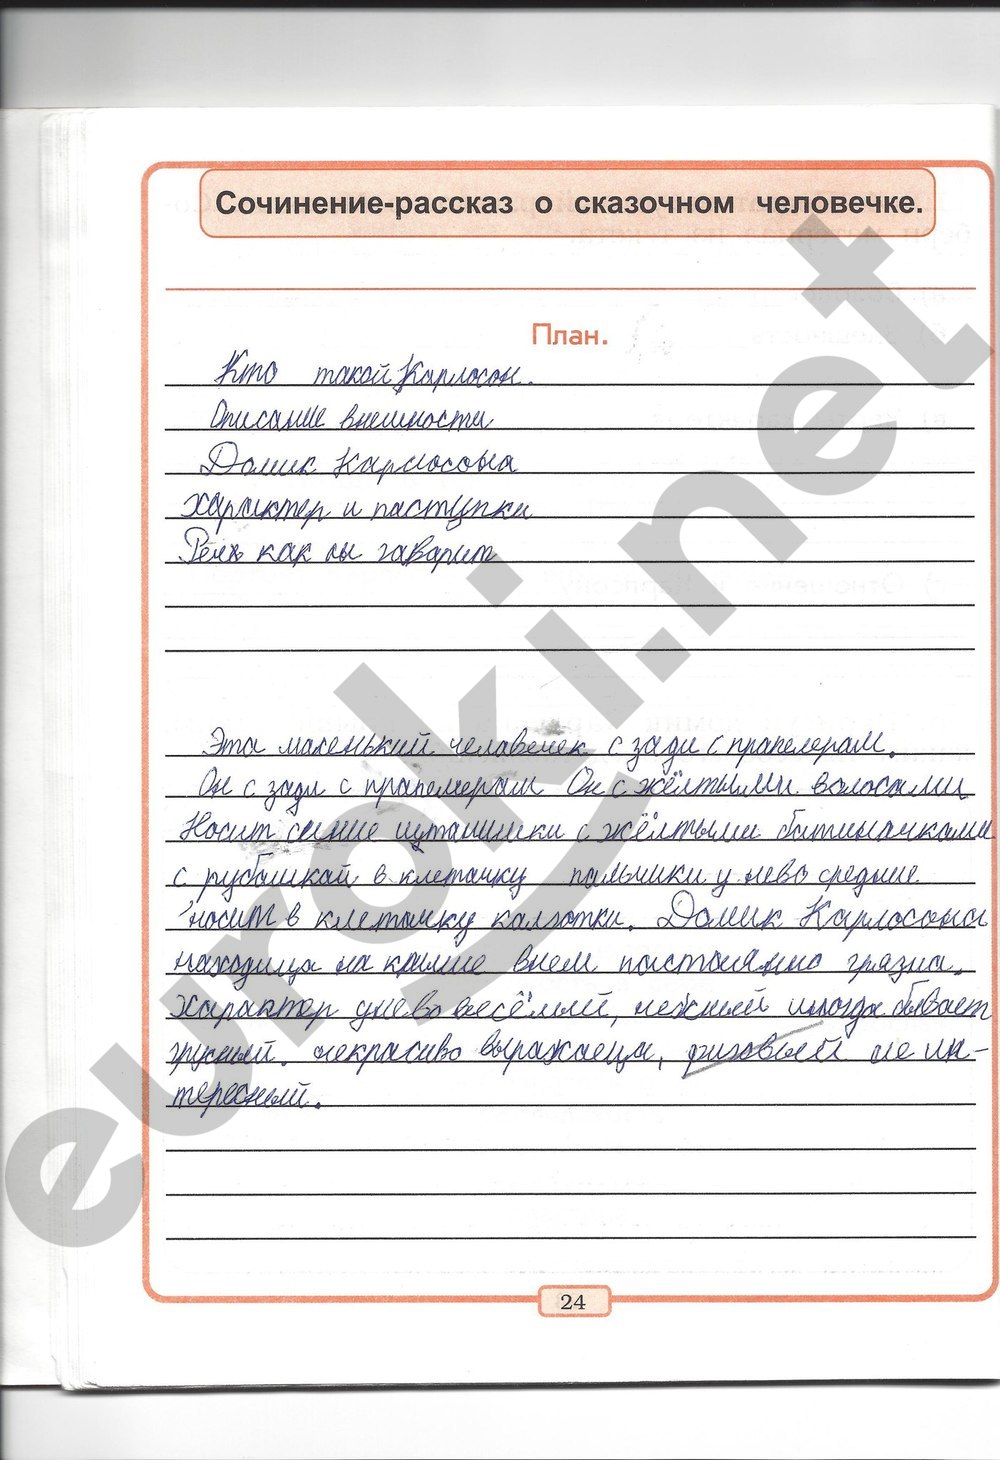 Сочинение-рассказ о сказочном человечке.
План.
Кто такой Карлосон.
Описание внешности
Домик Карлосона
характер и паступки
Речь как он гаварит
Эта маленький челавечек с зади с прапелерам.
Он с зади с прапелерам Он с жёлтыми волосами
Носит синие штанишки с жёлтыми батиначками
с рубашкай в клетачку пальчики у нево средние
носит в клетачку калготки. Домик Карлосона
находица на крыше внем пастаянно грязна.
Характер унево весёлый, нежный иногда бывает
грусный. некрасиво выражаеца, не ин-
тересный.
24
euroki.net